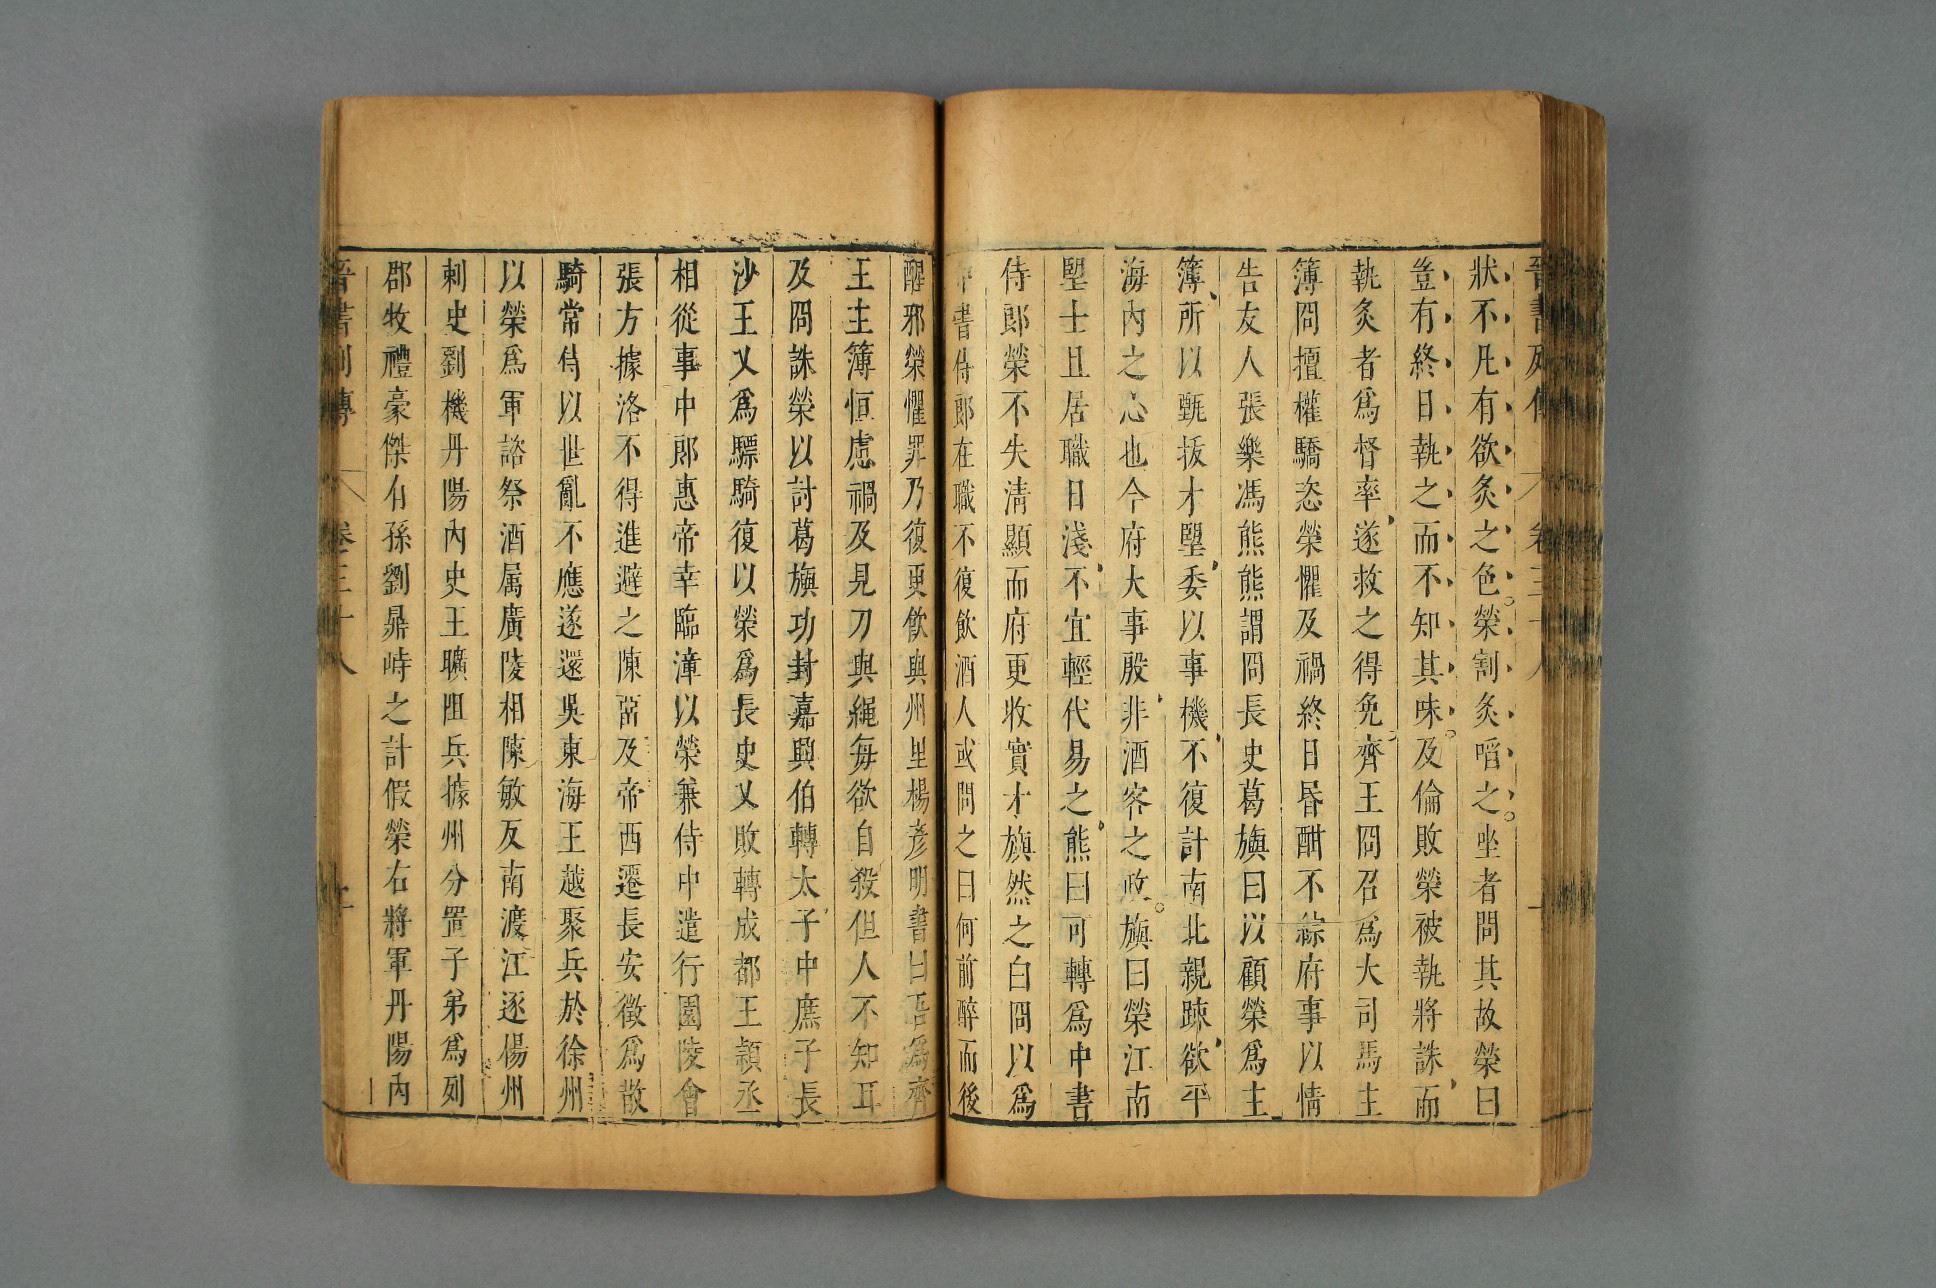 晉書列傳 卷三十八
狀不凡有欲炙之色榮割炙啗之坐者問其故榮曰
豈有終日執之而不知其味及倫敗榮被執將誅而
執炙者爲督率遂救之得免齊王冏召爲大司馬主
簿冏擅權驕恣榮懼及禍終日昬酣不綜府事以情
告友人張樂馮熊熊謂冏長史葛旟曰以顧榮爲主
簿所以甄拔才朢委以事機不復計南北親踈欲平
海內之心也今府大事殷非酒客之政旟曰榮江南
朢士且居職日淺不宜輕代易之熊曰可轉爲中書
侍郎榮不失清顯而府更收實才旟然之白冏以爲
中書侍郎在職不復飲酒人或問之曰何前醉而後
醒邪榮懼罪乃復更飲與州里楊彥明書曰吾爲齊
王主簿恒慮禍及見刀與繩每欲自殺但人不知耳
及冏誅榮以討葛旟功封嘉興伯轉太子中庶子長
沙王乂爲驃騎復以榮爲長史乂敗轉成都王穎丞
相從事中郎惠帝幸臨漳以榮兼侍中遣行園陵會
張方據洛不得進避之陳畱及帝西遷長安徵爲散
騎常侍以世亂不應遂還吳東海王越聚兵於徐州
以榮爲軍諮祭酒属廣陵相陳敏反南渡江逐楊州
刺史劉機丹陽內史王曠阻兵據州分置子弟爲列
郡收禮豪傑有孫劉鼎峙之計假榮右將軍丹陽內
晉書列傳 卷三十八